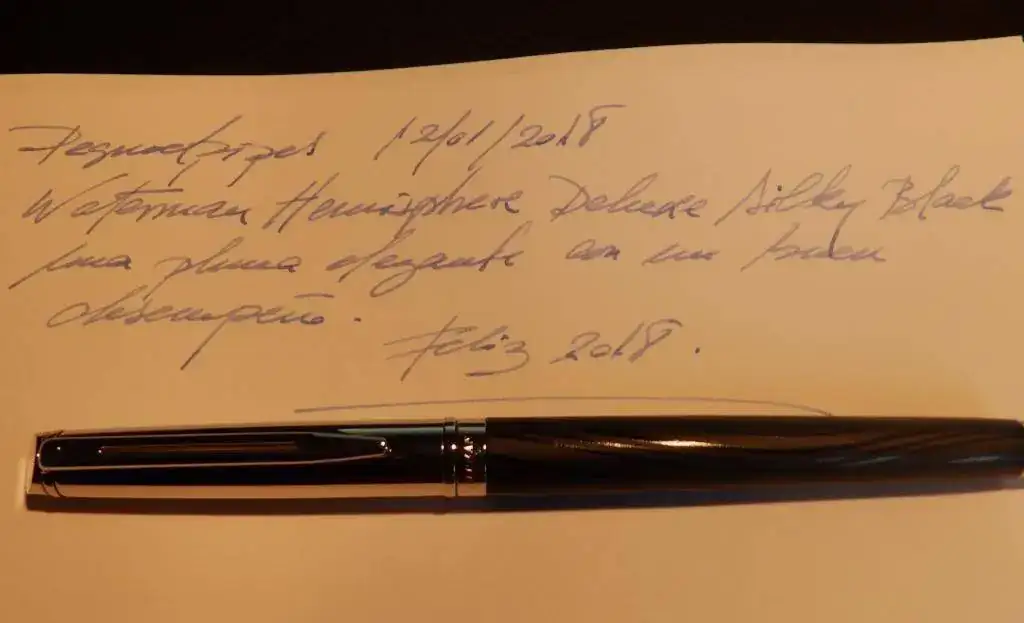 12/01/2018
Waterman Hemisphere Deluxe Silky Black
una pluma elegante con un buen
desempeño.
Feliz 2018.